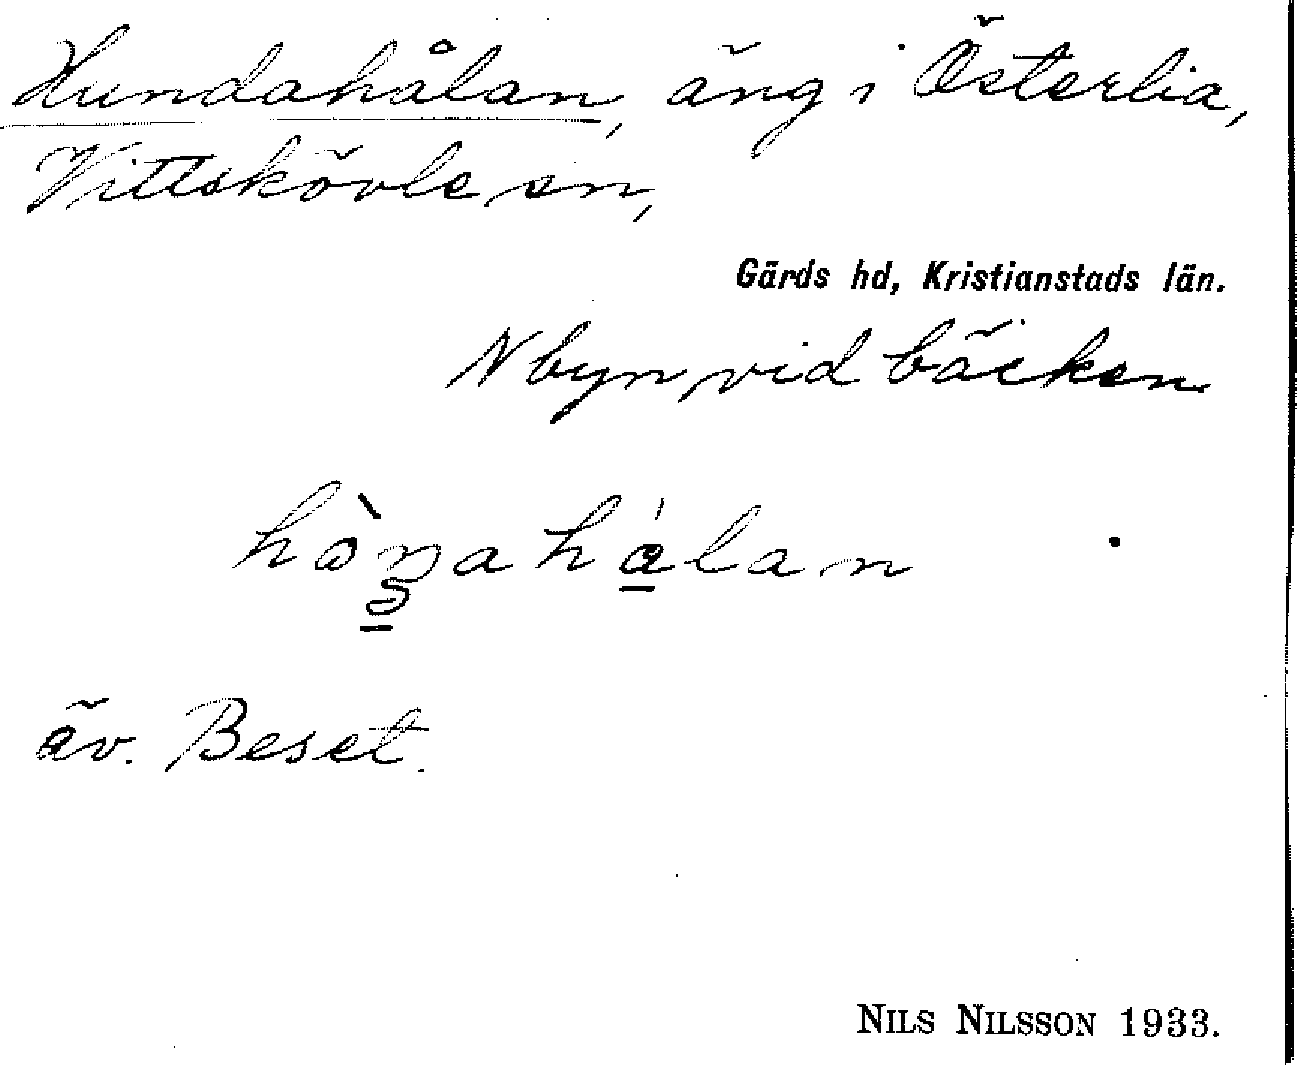 Hundahålan, äng i Österlia,
Vittskövle sn,
Gärds hd, Kristianstads län.
N byn, vid bäcken
hòn̥ahálan
äv. Beset.
NILS NILSSON 1933.